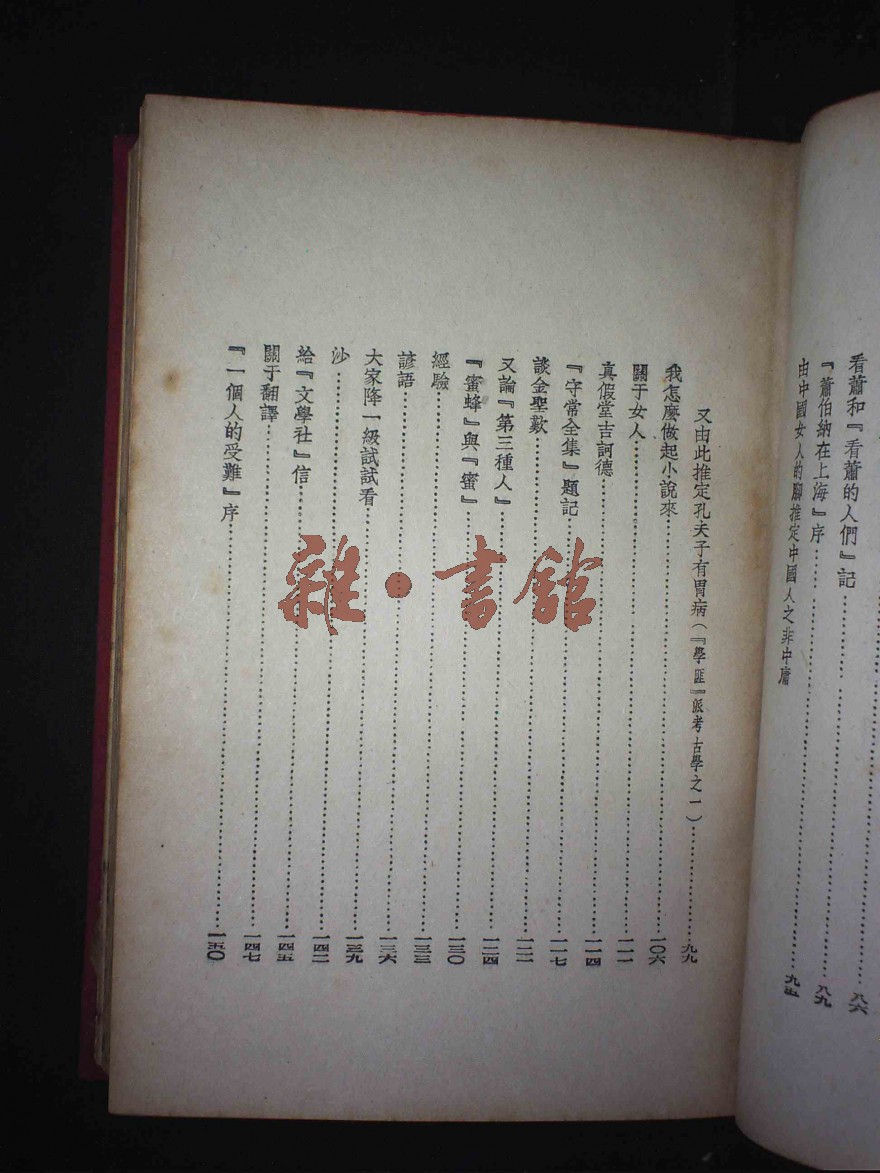 看蕭和『看蕭的人們』記……八六
『蕭伯納在上海』序……八九
由中國女人的脚推定中國人之非中庸
又由此推定孔夫子有胃病（『學匪』派考古學之一）……九九
我怎麼做起小說來……一〇六
關于女人……一一一
真假堂吉訶德……一一四
『守常全集』題記……一一七
談金聖歎……一二一
又論『第三種人』……一二四
『蜜蜂』與『蜜』……一三〇
經驗……一三三
諺語……一三六
大家降一級試試看……一三九
沙……一四二
給『文學社』信……一四五
關于翻譯……一四七
『一個人的受難』序……一五〇
雜·書館